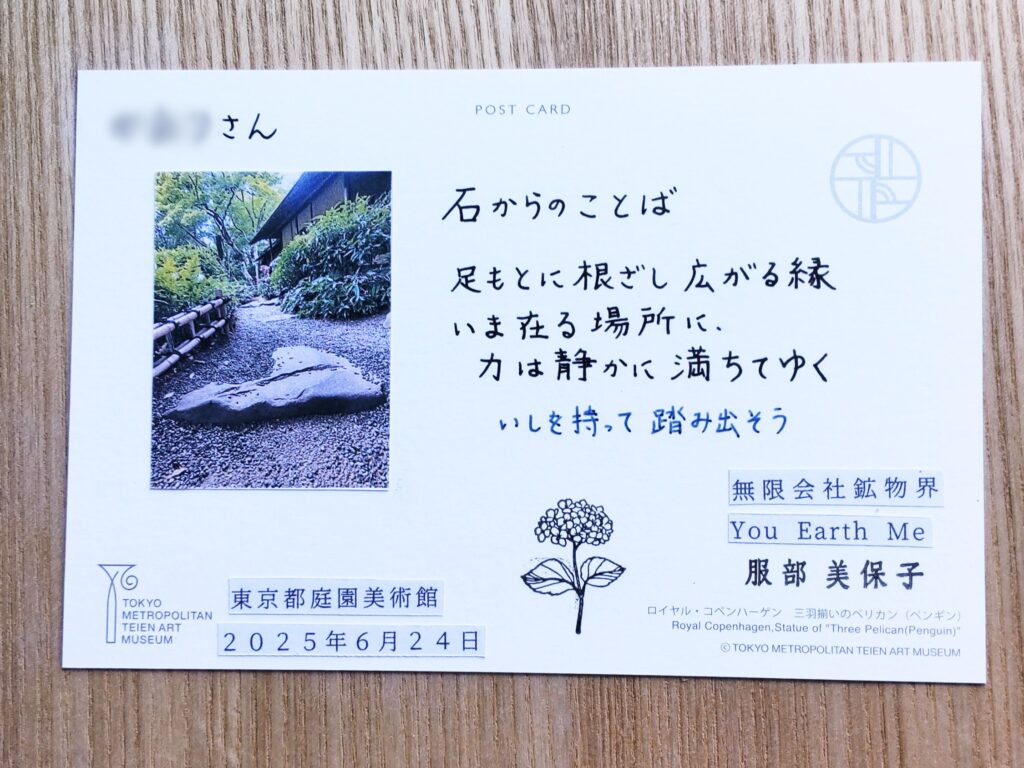 さん
POST CARD
石からのことば
足もとに根ざし広がる縁
いま在る場所に、
力は静かに満ちてゆく
いしを持って踏み出そう
無限会社鉱物界
You Earth Me
服部 美保子
東京都庭園美術館
2025年6月24日
TOKYO
METROPOLITAN
TEIEN ART
MUSEUM
ロイヤル・コペンハーゲン 三羽揃いのペリカン（ペンギン）
Royal Copenhagen,Statue of "Three Pelican(Penguin)"
© TOKYO METROPOLITAN TEIEN ART MUSEUM